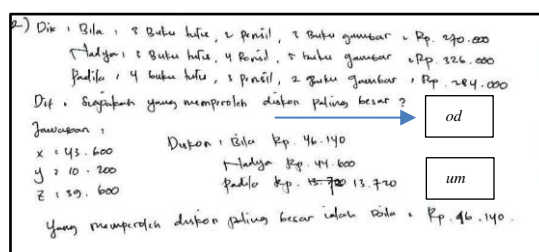 2) Dik : Bila : 3 Buku tulis, 2 pensil, 3 Buku gambar = Rp. 270.000
Nadya : 3 Buku tulis, 4 Pensil, 5 buku gambar = Rp. 326.000
Fadila : 4 buku tulis, 3 pensil, 2 Buku Gambar = Rp. 284.000
Dit : Siapakah yang memperoleh diskon paling besar ?
od
Jawaban :
x = 43.600
y = 10.200
z = 39.600
Diskon : Bila Rp. 46.140
Nadya Rp. 44.600
Fadila Rp. 13.720 13.720
um
Yang memperoleh diskon paling besar ialah Bila = Rp. 46.140.